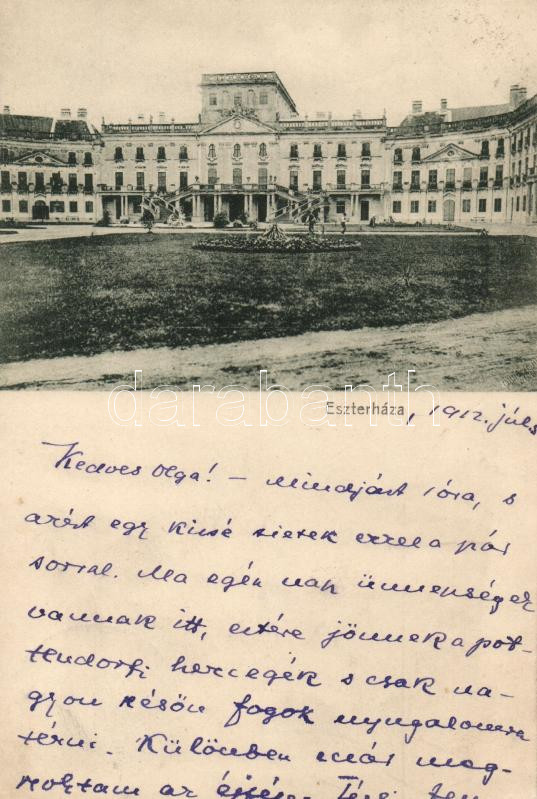 darabanth
Eszterháza, 1912. júls
Kedves Olga! – Mindjárt 1 óra, s
azért egy kissé sietek ezzel a pár
sorral. Ma egész nap ünnepségek
vannak itt, estére jönnek a pot-
tendorfi hercegék s csak na-
gyon későn fogok nyugalomra
térni. Különben már meg-
szoktam az